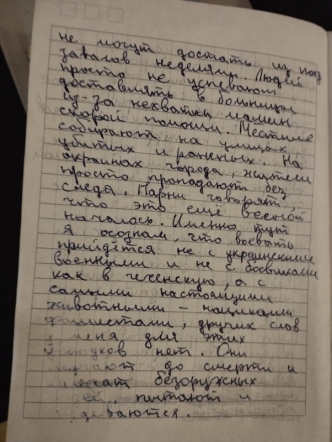 не могут достать из под
завалов неделями. Людей
просто не успевают
доставлять в больницы
из-за нехватки машин
скорой помощи. Местные
собирают на улицах
убитых и раненых. На
окраинах города, жители
просто пропадают без
следа. Парни говорят,
что это ещё весной
началось. Именно тут
я осознал, что воевать
прийдётся не с украинскими
военными и не с боевиками
как в чеченскую, а с
самыми настоящими
животными - нациками
фашистами, других слов
меня для этих
нет. Они
до смерти и
безоружных
пытают и